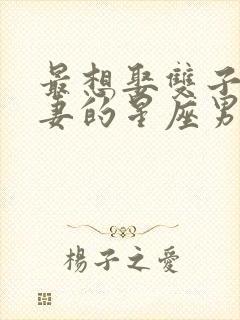 最想娶雙子
妻的星座男
楊子之愛